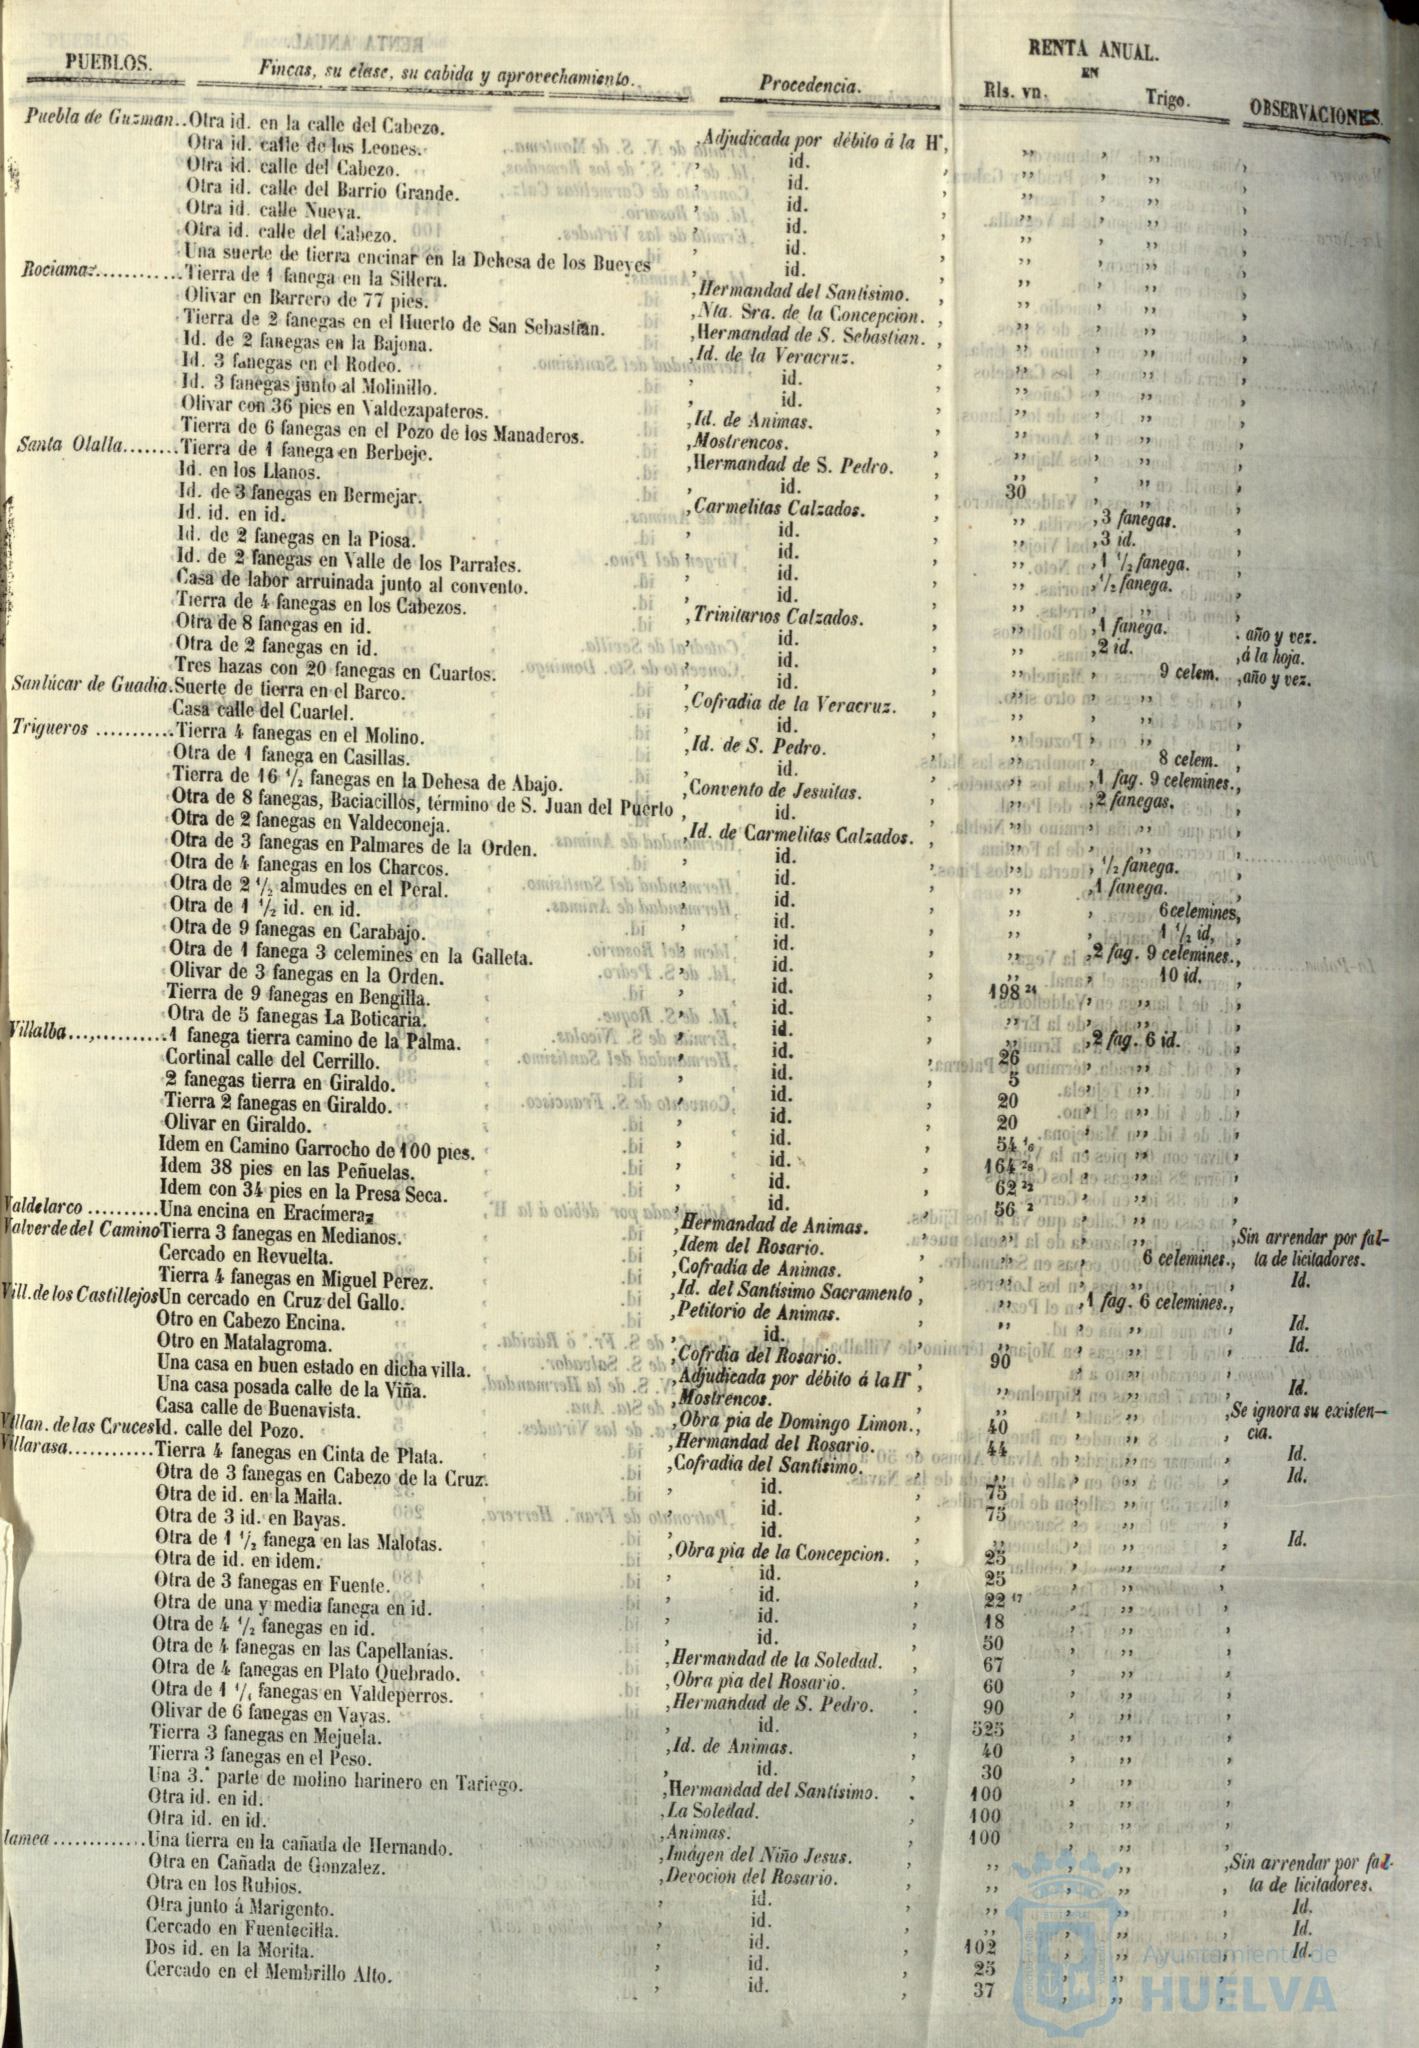 RENTA ANUAL.
PUEBLOS. Fincas, su clase, su cabida y aprovechamiento. Procedencia. EN Rls. vn. Trigo. OBSERVACIONES.
Puebla de Guzman..Otra id. en la calle del Cabezo. ,Adjudicada por débito á la Hª, ,, ,,
Otra id. calle de los Leones. id. ,, ,,
Otra id. calle del Cabezo. id. ,, ,,
Otra id. calle del Barrio Grande. id. ,, ,,
Otra id. calle Nueva. id. ,, ,,
Otra id. calle del Cabezo. id. ,, ,,
Una suerte de tierra encinar en la Dehesa de los Bueyes id. ,, ,,
Rociamaz...........Tierra de 1 fanega en la Sillera. ,Hermandad del Santísimo. ,, ,,
Olivar en Barrero de 77 pies. ,Nta. Sra. de la Concepcion. ,, ,,
Tierra de 2 fanegas en el Huerto de San Sebastian. ,Hermandad de S. Sebastian. ,, ,,
Id. de 2 fanegas en la Bajona. ,Id. de la Veracruz. ,, ,,
Id. 3 fanegas en el Rodeo. id. ,, ,,
Id. 3 fanegas junto al Molinillo. id. ,, ,,
Olivar con 36 pies en Valdezapateros. ,Id. de Animas. ,, ,,
Tierra de 6 fanegas en el Pozo de los Manaderos. ,Mostrencos. ,, ,,
Santa Olalla.......Tierra de 1 fanega en Berbeje. ,Hermandad de S. Pedro. ,, ,,
Id. en los Llanos. id. 30 ,,
Id. de 3 fanegas en Bermejar. ,Carmelitas Calzados. ,, ,3 fanegas.
Id. id. en id. id. ,, ,3 id.
Id. de 2 fanegas en la Piosa. id. ,, ,1 1/2 fanega.
Id. de 2 fanegas en Valle de los Parrales. id. ,, ,1/2 fanega.
Casa de labor arruinada junto al convento. id. ,, ,,
Tierra de 4 fanegas en los Cabezos. ,Trinitarios Calzados. ,, ,1 fanega. . año y vez.
Otra de 8 fanegas en id. id. ,, ,2 id. ,á la hoja.
Otra de 2 fanegas en id. id. ,, 9 celem. ,año y vez.
Tres hazas con 20 fanegas en Cuartos. id. ,, ,,
Sanlúcar de Guadia.Suerte de tierra en el Barco. ,Cofradia de la Veracruz. ,, ,,
Casa calle del Cuartel. id. ,, ,,
Trigueros ...........Tierra 4 fanegas en el Molino. ,Id. de S. Pedro. ,, 8 celem. ,
Otra de 1 fanega en Casillas. id. ,, ,1 fag. 9 celemines.,
Tierra de 16 1/2 fanegas en la Dehesa de Abajo. ,Convento de Jesuitas. ,, ,2 fanegas.
Otra de 8 fanegas, Baciacillos, término de S. Juan del Puerto , id. ,, ,,
Otra de 2 fanegas en Valdeconeja. ,Id. de Carmelitas Calzados. ,, , 1/2 fanega.
Otra de 3 fanegas en Palmares de la Orden. id. ,, ,1 fanega.
Otra de 4 fanegas en los Charcos. id. ,, 6 celemines,
Otra de 2 1/2 almudes en el Peral. id. ,, 1 1/2 id,
Otra de 1 1/2 id. en id. id. ,, ,2 fag. 9 celemines.,
Otra de 9 fanegas en Carabajo. id. ,, 10 id.
Otra de 1 fanega 3 celemines en la Galleta. id. 198 24
Olivar de 3 fanegas en la Orden. id. ,, ,,
Tierra de 9 fanegas en Bengilla. id. ,, ,2 fag. 6 id.
Otra de 5 fanegas La Boticaria. id. 26 ,,
Villalba...,..........1 fanega tierra camino de la Palma. id. 5 ,,
Cortinal calle del Cerrillo. id. 20 ,,
2 fanegas tierra en Giraldo. id. 20 ,,
Tierra 2 fanegas en Giraldo. id. 54 16 ,,
Olivar en Giraldo. id. 164 28 ,,
Idem en Camino Garrocho de 100 pies. id. 62 22 ,,
Idem 38 pies en las Peñuelas. id. 56 2 ,,
Idem con 34 pies en la Presa Seca. id.
Valdelarco ..........Una encina en Eracímera, ,Hermandad de Animas. ,, ,, ,Sin arrendar por fal-
Valverde del Camino Tierra 3 fanegas en Medianos. ,Idem del Rosario. ,, 6 celemines., ta de licitadores.
Cercado en Revuelta. ,Cofradia de Animas. ,, ,, Id.
Tierra 4 fanegas en Miguel Perez. ,Id. del Santísimo Sacramento , ,, ,1 fag. 6 celemines.,
Vill. de los Castillejos Un cercado en Cruz del Gallo. ,Petitorio de Animas. ,, ,, Id.
Otro en Cabezo Encina. id. ,, ,, Id.
Otro en Matalagroma. ,Cofrdia del Rosario. 90 ,,
Una casa en buen estado en dicha villa. ,Adjudicada por débito á la Hª ,, ,, Id.
Una casa posada calle de la Viña. ,Mostrencos. ,, ,, ,Se ignora su existen-
Casa calle de Buenavista. ,Obra pia de Domingo Limon., 40 ,, cia.
Villan. de las Cruces Id. calle del Pozo. ,Hermandad del Rosario. 44 ,, Id.
Villarasa............Tierra 4 fanegas en Cinta de Plata. ,Cofradia del Santísimo. ,, ,, Id.
Otra de 3 fanegas en Cabezo de la Cruz. id. 75 ,,
Otra de id. en la Maila. id. 75 ,,
Otra de 3 id. en Bayas. id. ,, ,, Id.
Otra de 1 1/2 fanega en las Malotas. ,Obra pia de la Concepcion. 25 ,,
Otra de id. en idem. id. 25 ,,
Otra de 3 fanegas en Fuente. id. 22 17 ,,
Otra de una y media fanega en id. id. 18 ,,
Otra de 4 1/2 fanegas en id. id. 50 ,,
Otra de 4 fanegas en las Capellanías. ,Hermandad de la Soledad. 67 ,,
Otra de 4 fanegas en Plato Quebrado. ,Obra pia del Rosario. 60 ,,
Otra de 1 1/4 fanegas en Valdeperros. ,Hermandad de S. Pedro. 90 ,,
Olivar de 6 fanegas en Vayas. id. 525 ,,
Tierra 3 fanegas en Mejuela. ,Id. de Animas. 40 ,,
Tierra 3 fanegas en el Peso. id. 30 ,,
Una 3.ª parte de molino harinero en Tariego. ,Hermandad del Santísimo. 100 ,,
Otra id. en id. ,La Soledad. 100 ,,
Otra id. en id. ,Animas. 100 ,,
lamea .............Una tierra en la cañada de Hernando. ,Imágen del Niño Jesus. ,, ,, ,Sin arrendar por fal-
Otra en Cañada de Gonzalez. ,Devocion del Rosario. ,, ,, ta de licitadores.
Otra en los Rubios. id. ,, ,, Id.
Otra junto á Marigento. id. ,, ,, Id.
Cercado en Fuentecilla. id. 102 ,, Id.
Dos id. en la Morita. id. 25 ,,
Cercado en el Membrillo Alto. id. 37 ,,
Ayuntamiento de
HUELVA